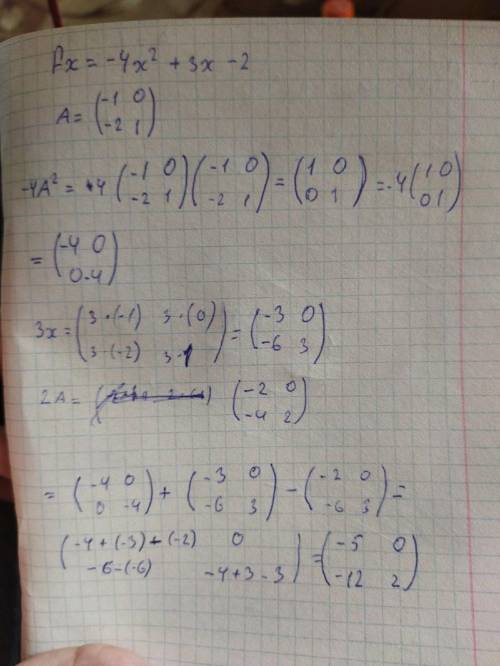 fx = -4x² + 3x - 2
A = (-1 0; -2 1)
-4A² = -4 (-1 0; -2 1) (-1 0; -2 1) = (1 0; 0 1) = -4 (1 0; 0 1)
= (-4 0; 0 -4)
3x = (3·(-1) 3·(0); 3·(-2) 3·1) = (-3 0; -6 3)
2A = (-2 0; -4 2)
= (-4 0; 0 -4) + (-3 0; -6 3) - (-2 0; -6 3) =
(-4+(-3)-(-2) 0; -6-(-6) -4+3-3) = (-5 0; -12 2)